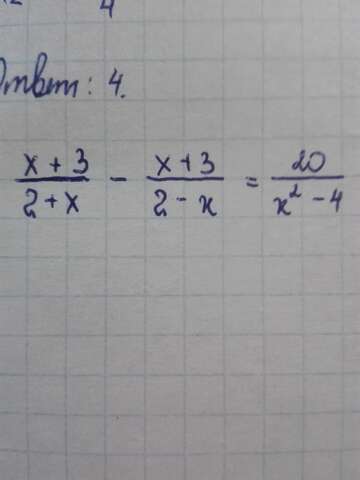 4
Ответ: 4.
x + 3 / 2 + x - x + 3 / 2 - x = 20 / x² - 4